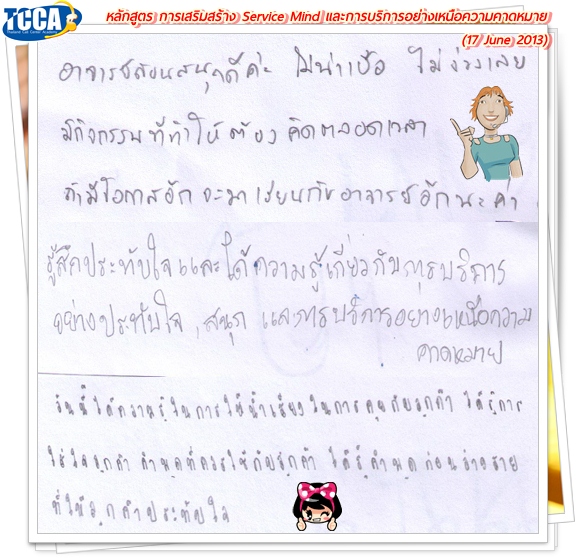 TCCA
Thailand Call Center Academy
หลักสูตร การเสริมสร้าง Service Mind และการบริการอย่างเหนือความคาดหมาย
(17 June 2013)
อาจารย์สอนสนุกดีค่ะ ไม่น่าเบื่อ ไม่ง่วงเลย
มีกิจกรรมที่ทำให้ต้องคิดตลอดเวลา
ถ้ามีโอกาสอีก จะมาเรียนกับอาจารย์อีกนะค่ะ
รู้สึกประทับใจและได้ความรู้เกี่ยวกับการบริการ
อย่างประทับใจ, สนุก และการบริการอย่างเหนือความ
คาดหมาย
วันนี้ได้ความรู้ในการใช้น้ำเสียงในการคุยกับลูกค้า ได้รู้การ
ใส่ใจลูกค้า คำพูดที่ควรใช้กับลูกค้า ได้รู้คำพูดก่อนวางสาย
ที่ให้ลูกค้าประทับใจ